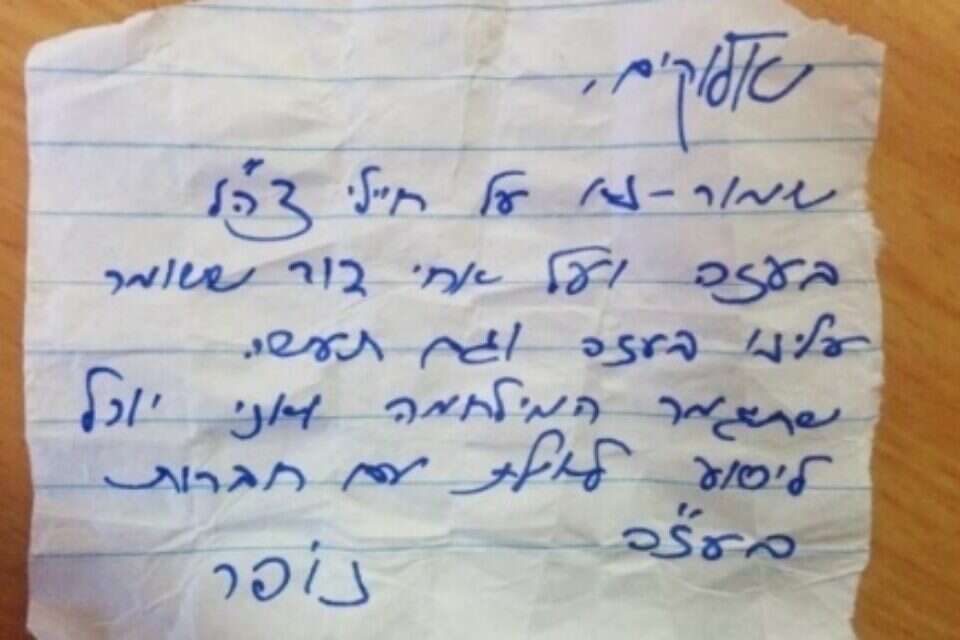 אלוקים,
שמור-נא על חיילי צה"ל
בעזה ועל אחי דור ששומר
עלינו בעזה וגם תעשי.
שתיגמר המילחמה ואני יוכל
ליסוע לאילת עם חברות
בעז"ה
נופר